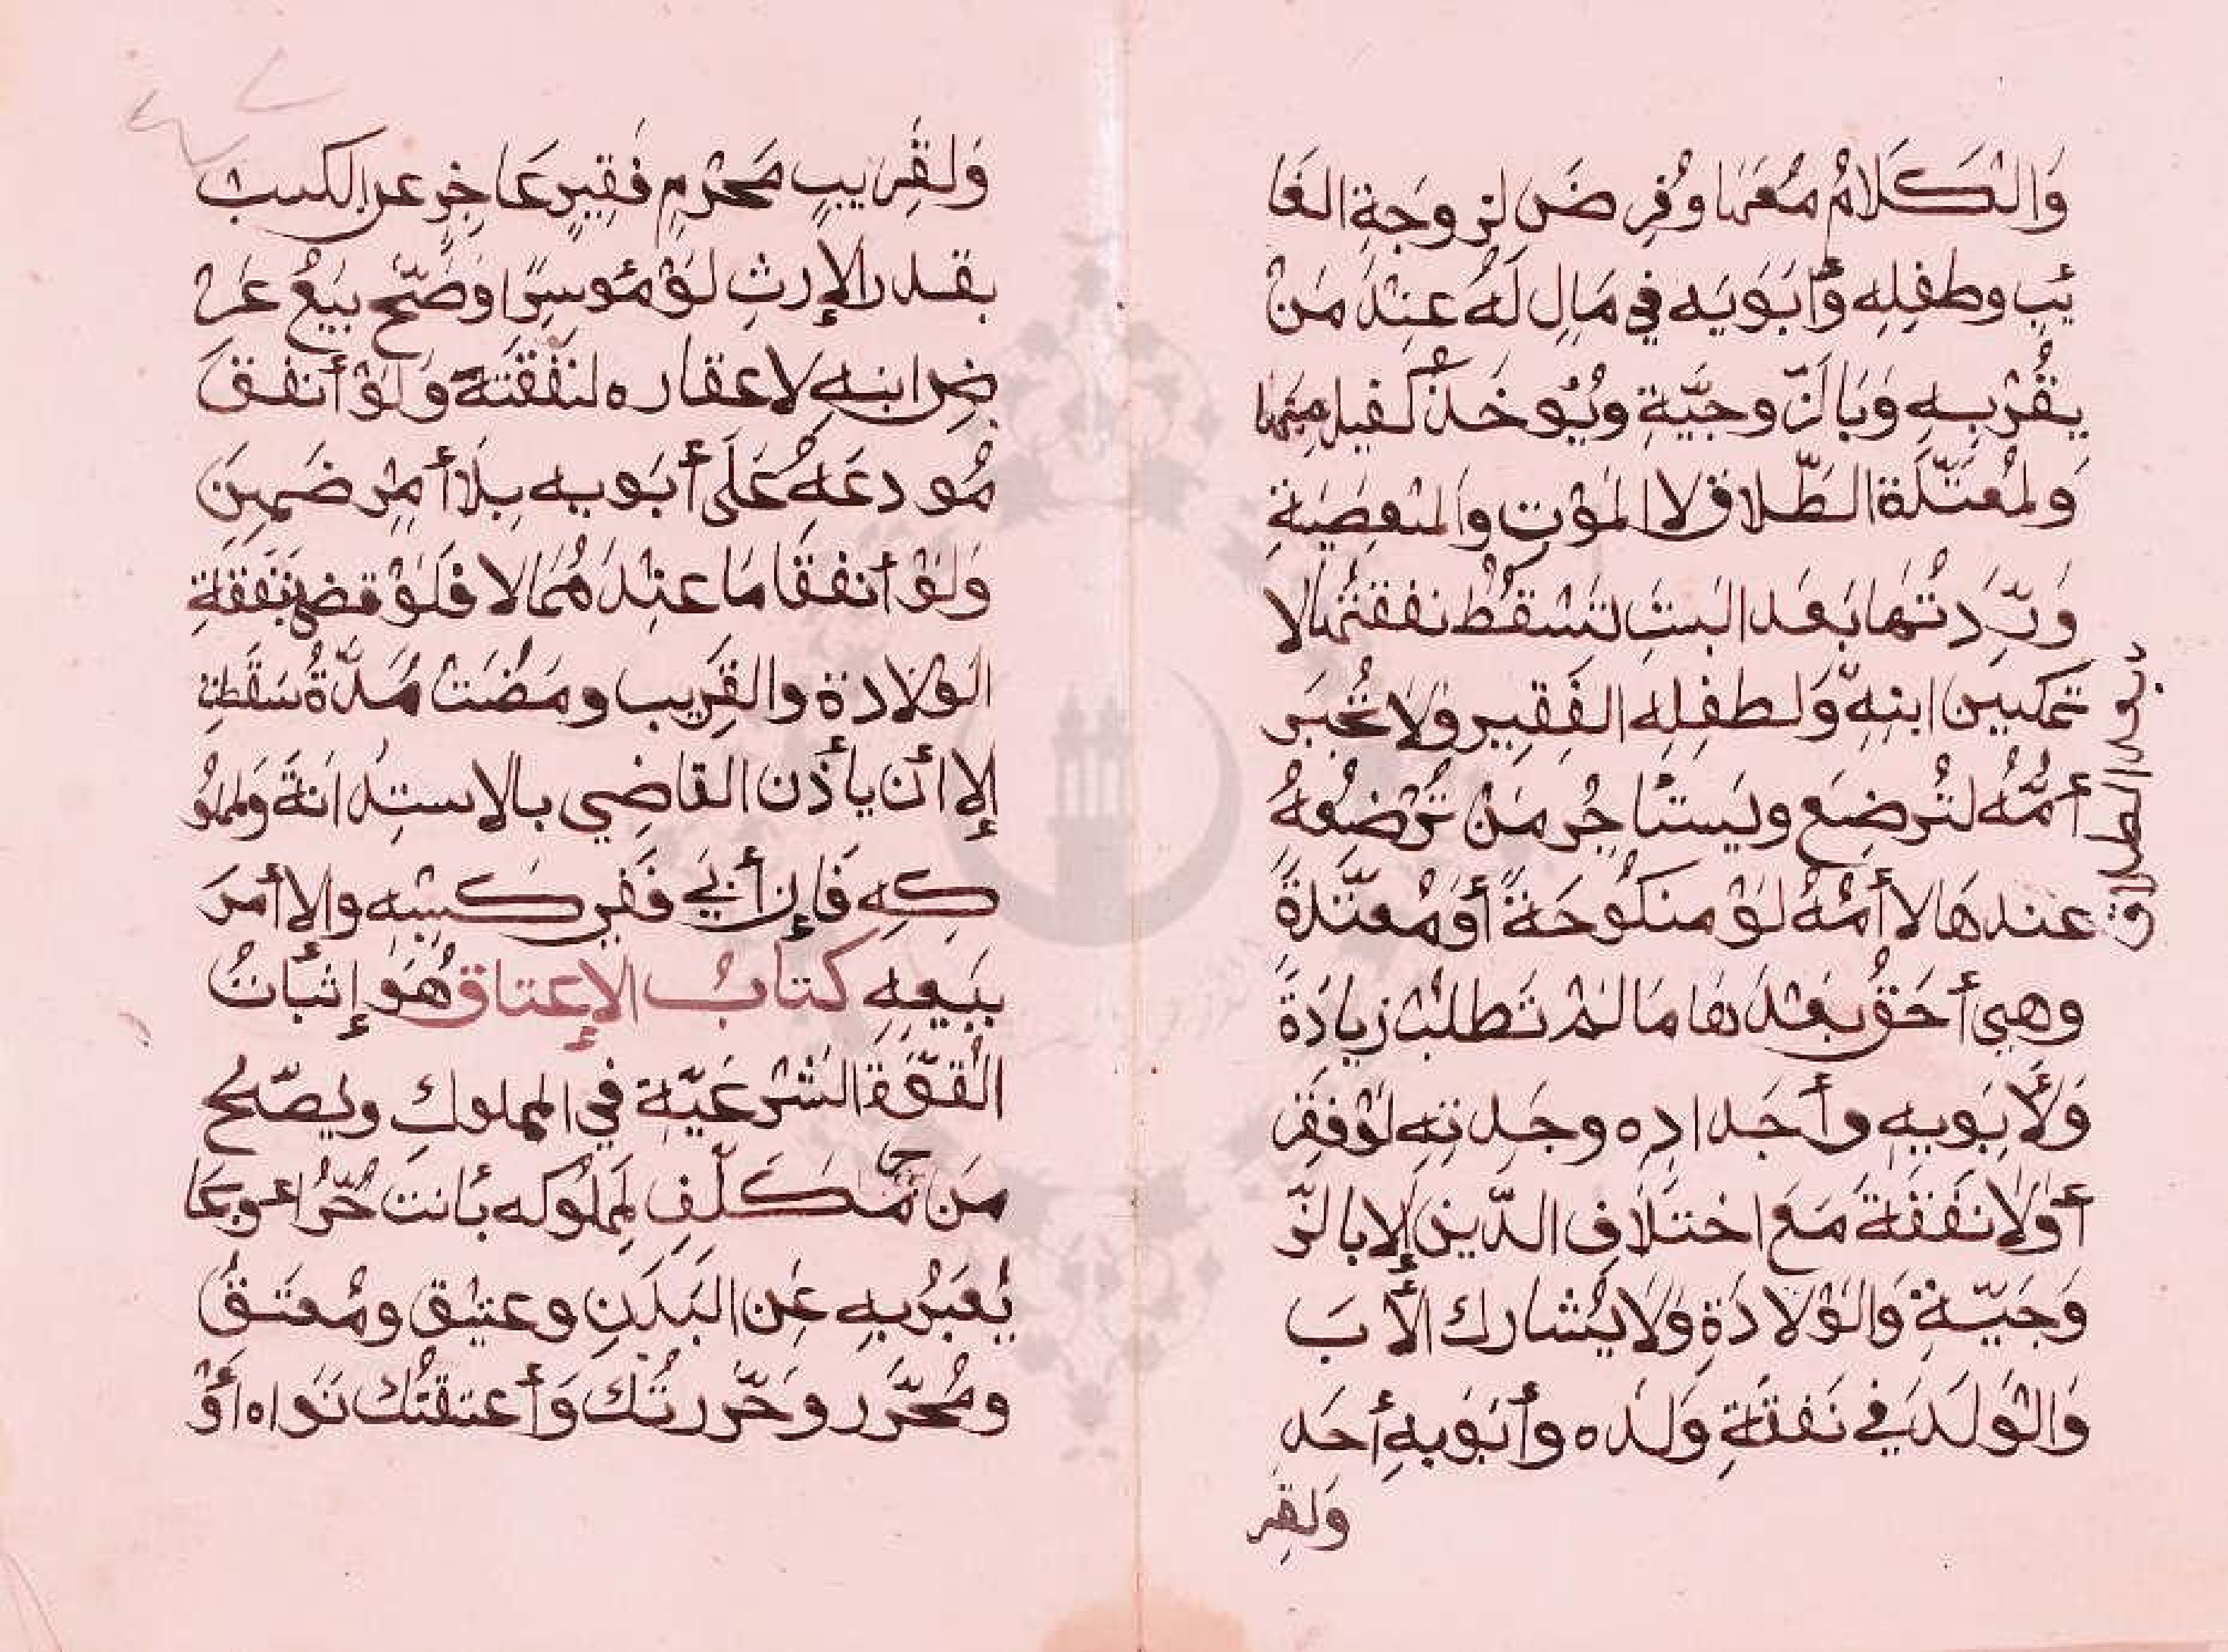 وَالْكَلَامُ مَعَهَا وَفُرِضَ لِزَوجَةِ الغَا
ئِبِ وطفلِهِ وَأَبَوَيهِ في مَالٍ لَهُ عِنْدَ مَنْ
يقُرُّ بِهِ وَبِالزَّوجِيَّةِ ويُوخَذُ كَفيل مِنهَا
وَلمُعتَدَّةِ الطَّلاقِ لا المَوْتِ والمَعصِيَةِ
وَرِدَّتُهَا بَعَد البَتِّ تُسْقِطُ نفقتَهَا لا
تمكين ابنِهِ وَلطفلِهِ الفَقِيرِ ولا تُجْبَر
أُمُّهُ لتُرضِعَ ويَستَأجِرُ مَنْ تُرْضِعُهُ
عندهَا لا أُمَّهُ لَوْ منكُوحَةً أَوْ مُعتَدَّةً
وهِيَ أَحَقُّ بَعْدَهَا مَا لَمْ تَطلُبْ زِيَادَةً
وَلأَبَوَيهِ وأَجدَادِه وجَدَّتِهِ لَوْ فُقَر
أَوَلَا نَفَقَةَ مَعَ اختلَافِ الدِّينِ إلا بالزَّ
وجِيَّةِ وَالوِلَادَةِ وَلَا يُشارك الأَبَ
وَالوَلَدَ في نَفَقَةِ وَلَدِه وَأَبَوَيهِ أَحَد
وَلقَرِ
بحوى الطلاق
وَلقَرِيبٍ مَحْرَمٍ فَقِيرٍ عَاجِزٍ عن الكسب
بقدر الإرثِ لَوْ مُوسِرًا وَصَحَّ بَيْعُ عَرْ
ضِ ابنِهِ لا عقاره لنَفَقَتِهِ وَلَوْ أَنفَقَ
مُودَعُهُ عَلَى أَبَويه بِلَا أَمْرٍ ضَمِنَ
وَلَوْ أَنفقَا مَا عِنْدَهُمَا لا فَلَوْ قضى بنَفَقَةِ
الوِلادَةِ والقَرِيب ومَضَتْ مُدَّةٌ سَقَطت
إلا أَن يأذن القاضِي بالاستِدَانَةِ وَلمملُو
كِهِ فَإِن أَبَي فَفي كَسْبِهِ وإلا أُمرَ
ببَيعِهِ كتابُ الإعتاقِ هُوَ إثبَاتُ
القُوَّةِ الشَّرْعِيَّةِ في المملوكِ ويصِحُّ
مِن حر مُكَلَّفٍ لمملُوكه بأَنتَ حُرٌّ أو بمَا
يُعَبَّرُ بِهِ عَنِ البَدَنِ وعتِيق ومُعتَقٌ
ومُحَرَّر وحَرَّرتُكَ وَأَعتقتُكَ نَوَاه أَوْ